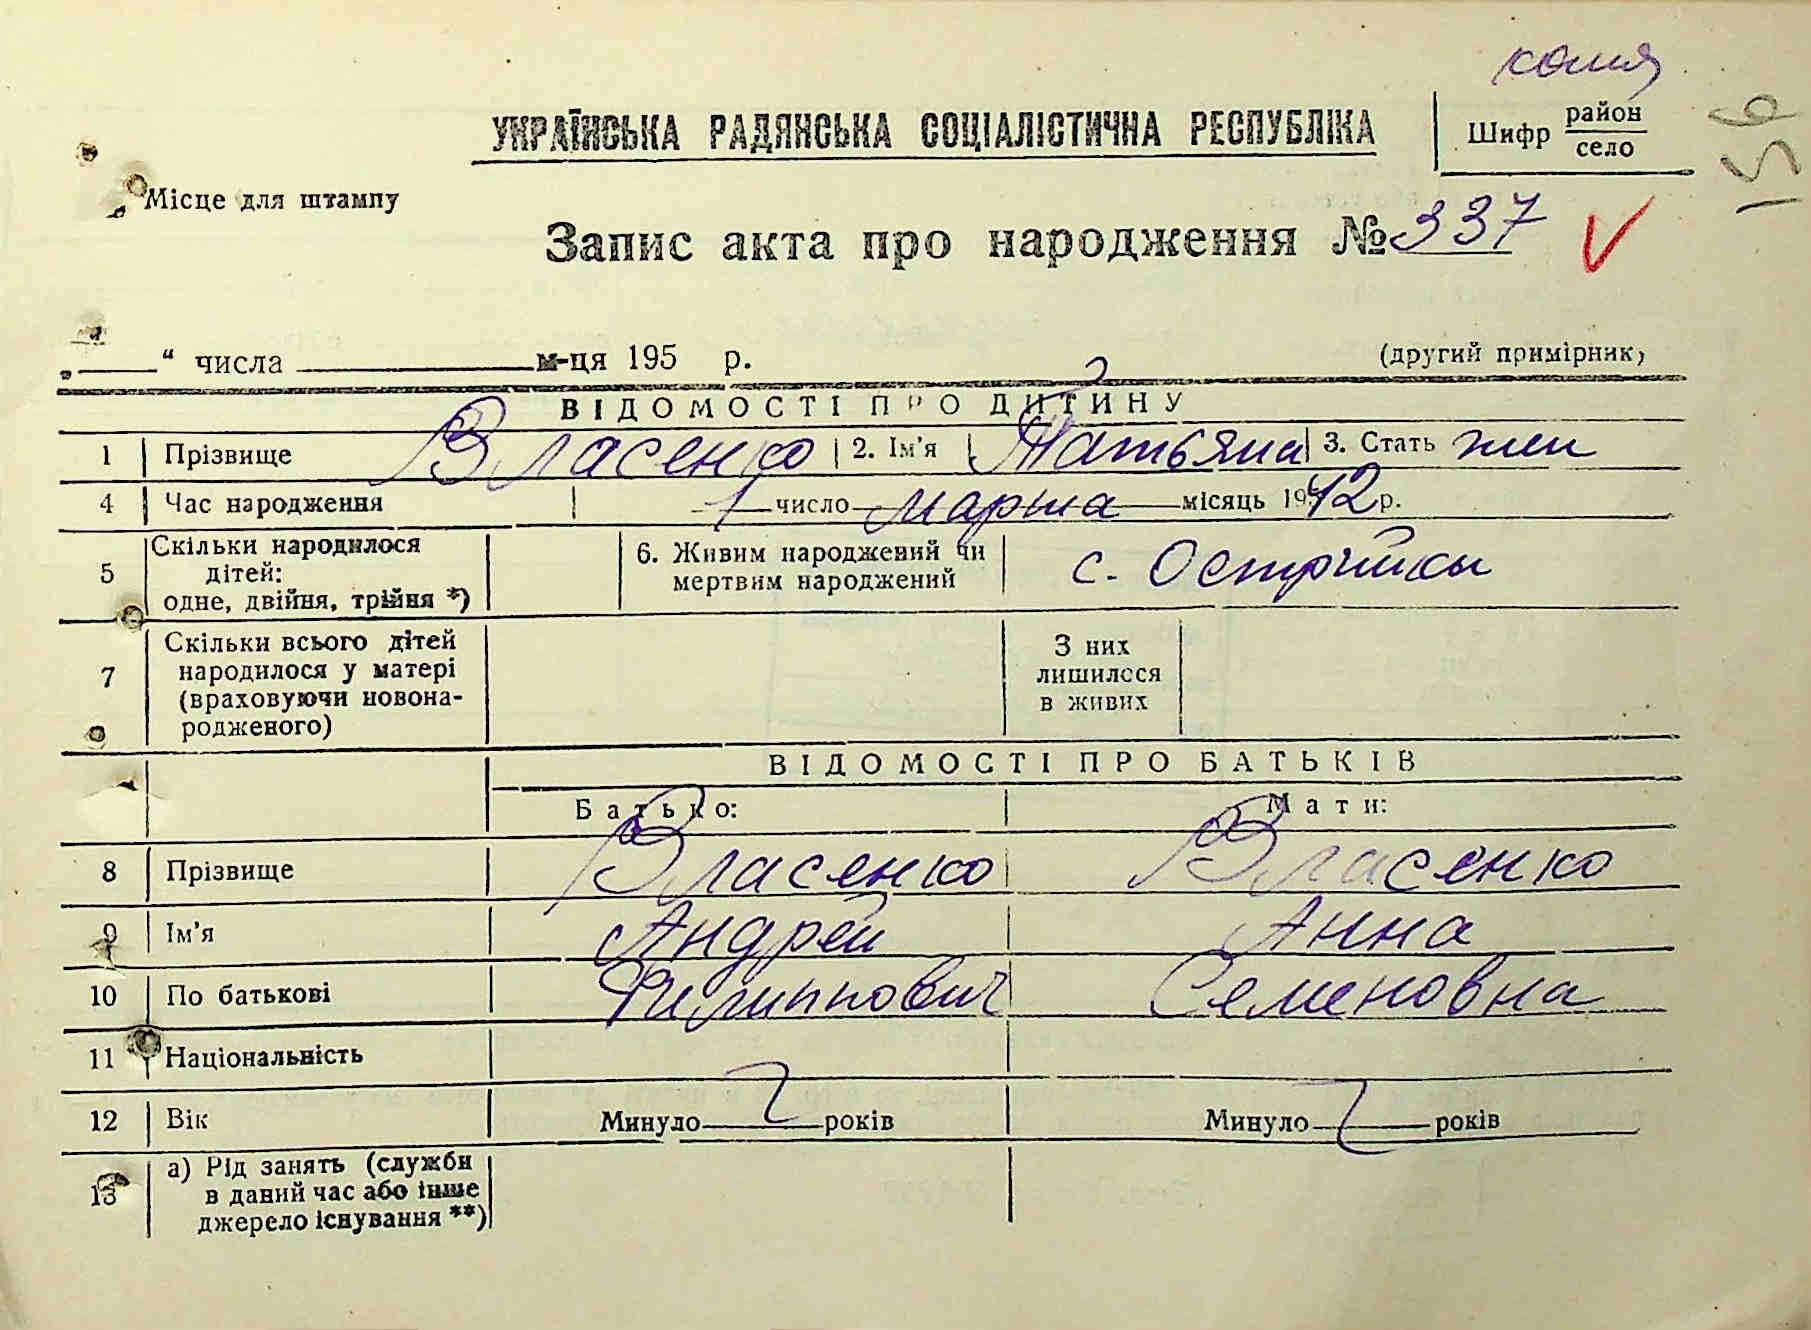 копия
УКРАЇНСЬКА РАДЯНСЬКА СОЦІАЛІСТИЧНА РЕСПУБЛІКА
Шифр район
село
156
Місце для штампу
Запис акта про народження № 337
„ “ числа м-ця 195 р. (другий примірник)
ВІДОМОСТІ ПРО ДИТИНУ
1 Прізвище Власенко 2. Ім'я Татьяна 3. Стать жен
4 Час народження 1 число марта місяць 1942 р.
5 Скільки народилося дітей: одне, двійня, трійня *) 6. Живим народжений чи мертвим народжений с. Острийки
7 Скільки всього дітей народилося у матері (враховуючи новонародженого) З них лишилося в живих
ВІДОМОСТІ ПРО БАТЬКІВ
Батько: Мати:
8 Прізвище Власенко Власенко
9 Ім'я Андрей Анна
10 По батькові Филиппович Семеновна
11 Національність
12 Вік Минуло років Минуло років
13 а) Рід занять (служби в даний час або інше джерело існування **)